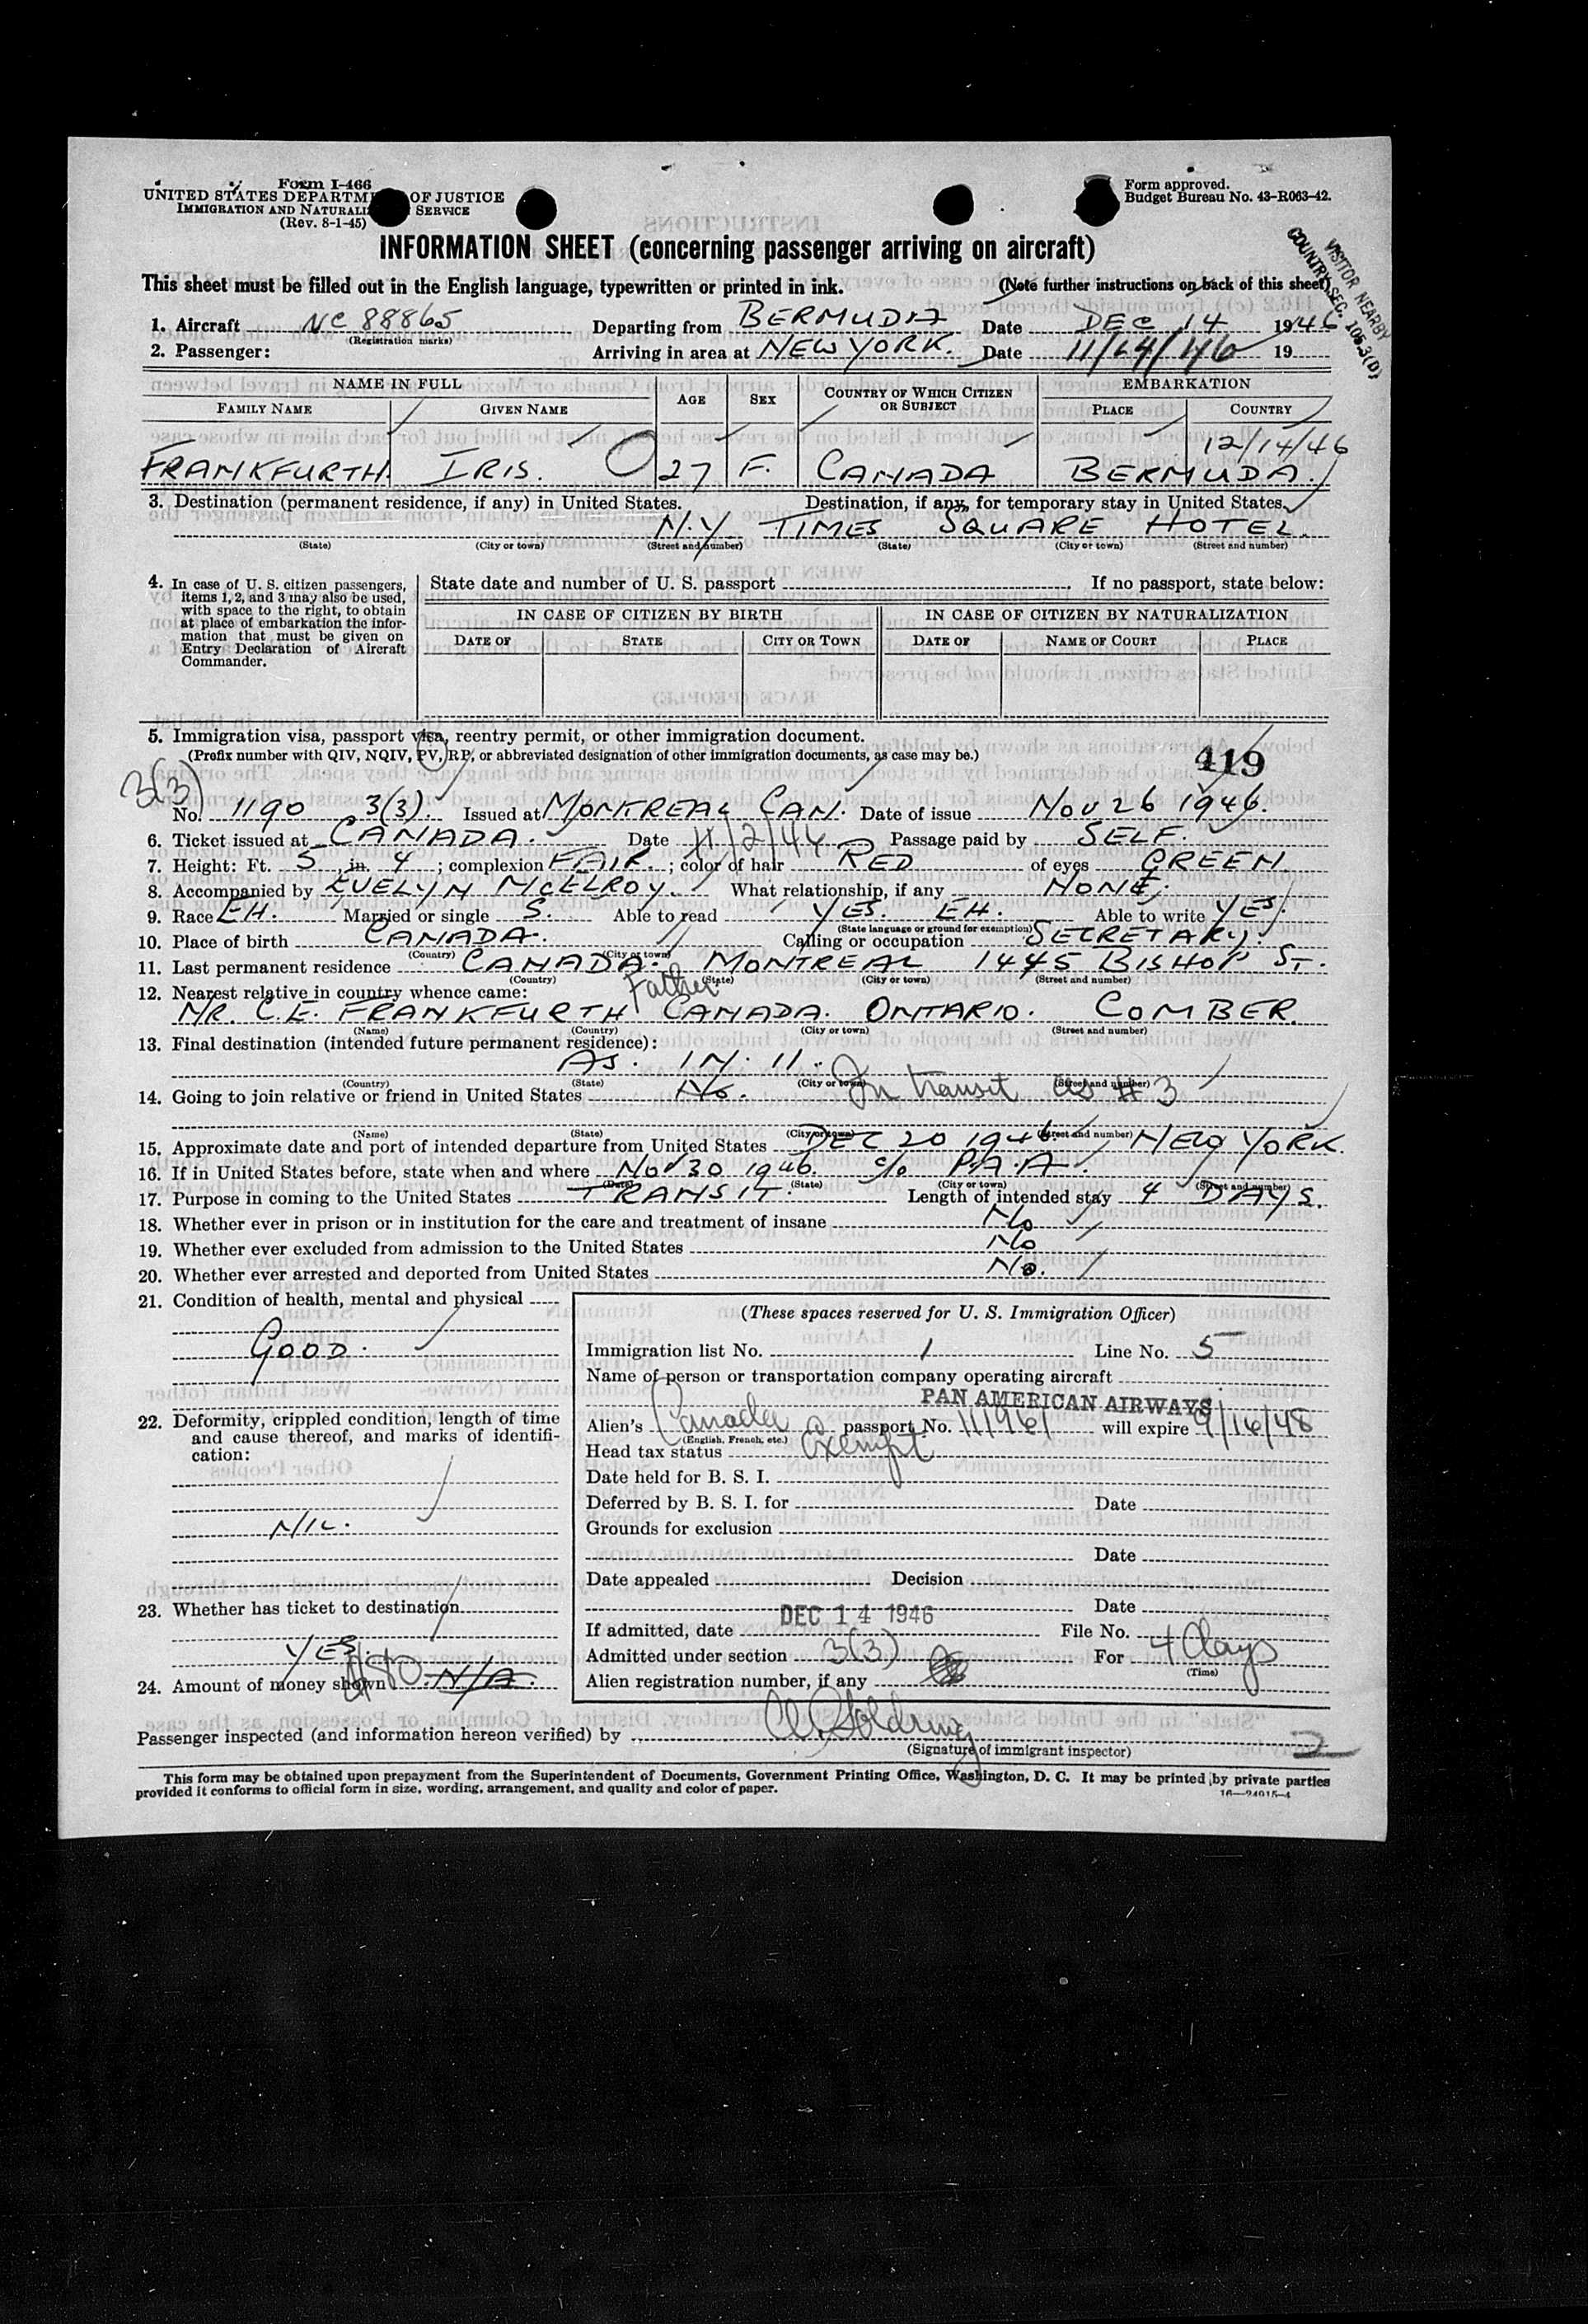 Form I-466
UNITED STATES DEPARTM OF JUSTICE
IMMIGRATION AND NATURALI SERVICE
(Rev. 8-1-45)
Form approved.
Budget Bureau No. 43-R063-42.
INFORMATION SHEET (concerning passenger arriving on aircraft)
VISITOR NEARBY
COUNTRY SEC.
This sheet must be filled out in the English language, typewritten or printed in ink. (Note further instructions on back of this sheet)
1. Aircraft NC 88865 Departing from BERMUDA Date DEC 14 1946
(Registration marks)
2. Passenger: Arriving in area at NEW YORK. Date 19
NAME IN FULL AGE SEX COUNTRY OF WHICH CITIZEN OR SUBJECT EMBARKATION
FAMILY NAME GIVEN NAME PLACE COUNTRY
12/14/46
FRANKFURTH IRIS. 27 F. CANADA BERMUDA.
3. Destination (permanent residence, if any) in United States. Destination, if any, for temporary stay in United States.
N.Y TIMES SQUARE HOTEL.
(State) (City or town) (Street and number) (State) (City or town) (Street and number)
4. In case of U. S. citizen passengers, items 1, 2, and 3 may also be used, with space to the right, to obtain at place of embarkation the information that must be given on Entry Declaration of Aircraft Commander.
State date and number of U. S. passport If no passport, state below:
IN CASE OF CITIZEN BY BIRTH IN CASE OF CITIZEN BY NATURALIZATION
DATE OF STATE CITY OR TOWN DATE OF NAME OF COURT PLACE
5. Immigration visa, passport visa, reentry permit, or other immigration document.
(Prefix number with QIV, NQIV, PV, RP, or abbreviated designation of other immigration documents, as case may be.) 419
3(3)
No. 1190 3(3). Issued at MONTREAL CAN. Date of issue NOV 26 1946.
6. Ticket issued at CANADA. Date Passage paid by SELF.
7. Height: Ft. 5 in. 4 ; complexion FAIR. ; color of hair RED of eyes GREEN.
8. Accompanied by EVELYN MCELROY. What relationship, if any NONE.
9. Race EH. Married or single S. Able to read YES. EH. Able to write YES.
(State language or ground for exemption)
10. Place of birth CANADA. Calling or occupation SECRETARY.
(Country) (City or town)
11. Last permanent residence CANADA. MONTREAL 1445 BISHOP ST.
(Country) (State) (City or town) (Street and number)
12. Nearest relative in country whence came: Father
MR. C.E. FRANKFURTH CANADA. ONTARIO. COMBER.
(Name) (Country) (City or town) (Street and number)
13. Final destination (intended future permanent residence):
AS. IN. 11.
(Country) (State) (City or town) (Street and number)
14. Going to join relative or friend in United States No. In transit as # 3
(Name) (State) (City or town) (Street and number)
15. Approximate date and port of intended departure from United States DEC 20 1946 NEW YORK.
16. If in United States before, state when and where NOV 30 1946. c/o P.A.A.
(Date) (State) (City or town) (Street and number)
17. Purpose in coming to the United States TRANSIT. Length of intended stay 4 DAYS.
18. Whether ever in prison or in institution for the care and treatment of insane No
19. Whether ever excluded from admission to the United States No
20. Whether ever arrested and deported from United States No.
21. Condition of health, mental and physical
GOOD.
22. Deformity, crippled condition, length of time and cause thereof, and marks of identification:
NIL.
23. Whether has ticket to destination
YES.
24. Amount of money shown N/A.
(These spaces reserved for U. S. Immigration Officer)
Immigration list No. 1 Line No. 5
Name of person or transportation company operating aircraft
PAN AMERICAN AIRWAYS
Alien's Canada passport No. 11/961 will expire 9/16/48
(English, French, etc.)
Head tax status Exempt
Date held for B. S. I.
Deferred by B. S. I. for Date
Grounds for exclusion
Date
Date appealed Decision
Date
If admitted, date DEC 14 1946 File No.
Admitted under section 3(3) For 4 Days
(Time)
Alien registration number, if any
Passenger inspected (and information hereon verified) by
(Signature of immigrant inspector)
2
This form may be obtained upon prepayment from the Superintendent of Documents, Government Printing Office, Washington, D. C. It may be printed by private parties
provided it conforms to official form in size, wording, arrangement, and quality and color of paper.
16—24015-4